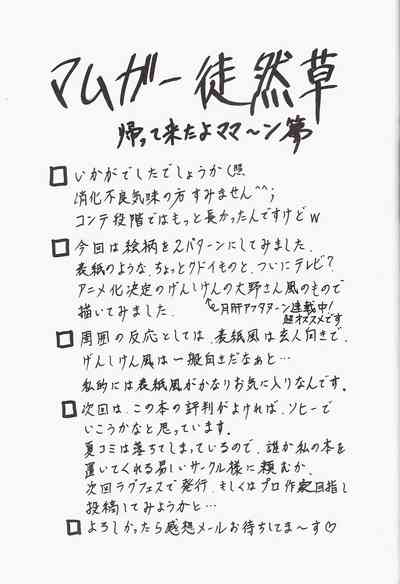 マムガー徒然草
帰って来たよママ〜ン篇
□いかがでしたでしょうか(照
消化不良気味の方すみません^^;
コンテ段階ではもっと長かったんですけどw
□今回は絵柄を2パターンにしてみました、
表紙のような、ちょっとクドイものと、ついにテレビ?
アニメ化決定のげんしけんの大野さん風のもので
描いてみました。
月刊アフタヌーン連載中!
超オススメです
□周囲の反応としては、表紙風は玄人向きで、
げんしけん風は一般向きだなぁと…
私的には表紙風がかなりお気に入りなんです。
□次回は、この本の評判がよければ、ソヒーで
いこうかなと思っています。
夏コミは落ちてしまっているので、誰か私の本を
置いてくれる易しいサークル様に頼むか、
次回ラヴフェスで発行、もしくはプロ作家目指し
投稿してみようかと…
□よろしかったら感想メールお待ちしてま〜す♡